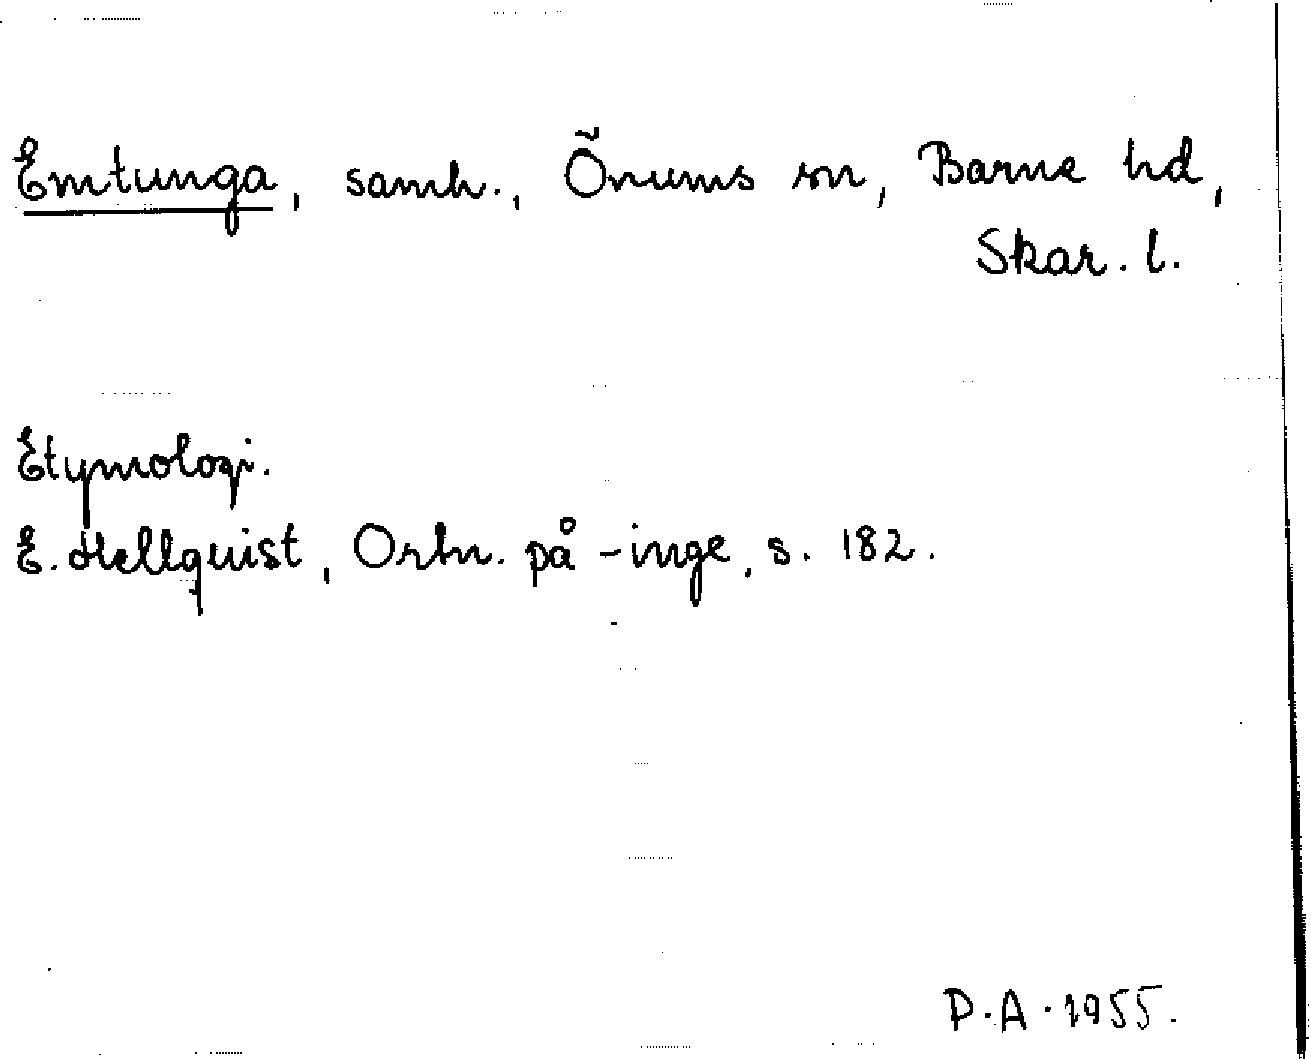 Emtunga, samh., Önums sn, Barne hd,
Skar. l.
Etymologi.
E. Hellquist, Ortn. på -inge, s. 182.
P.A. 1955.